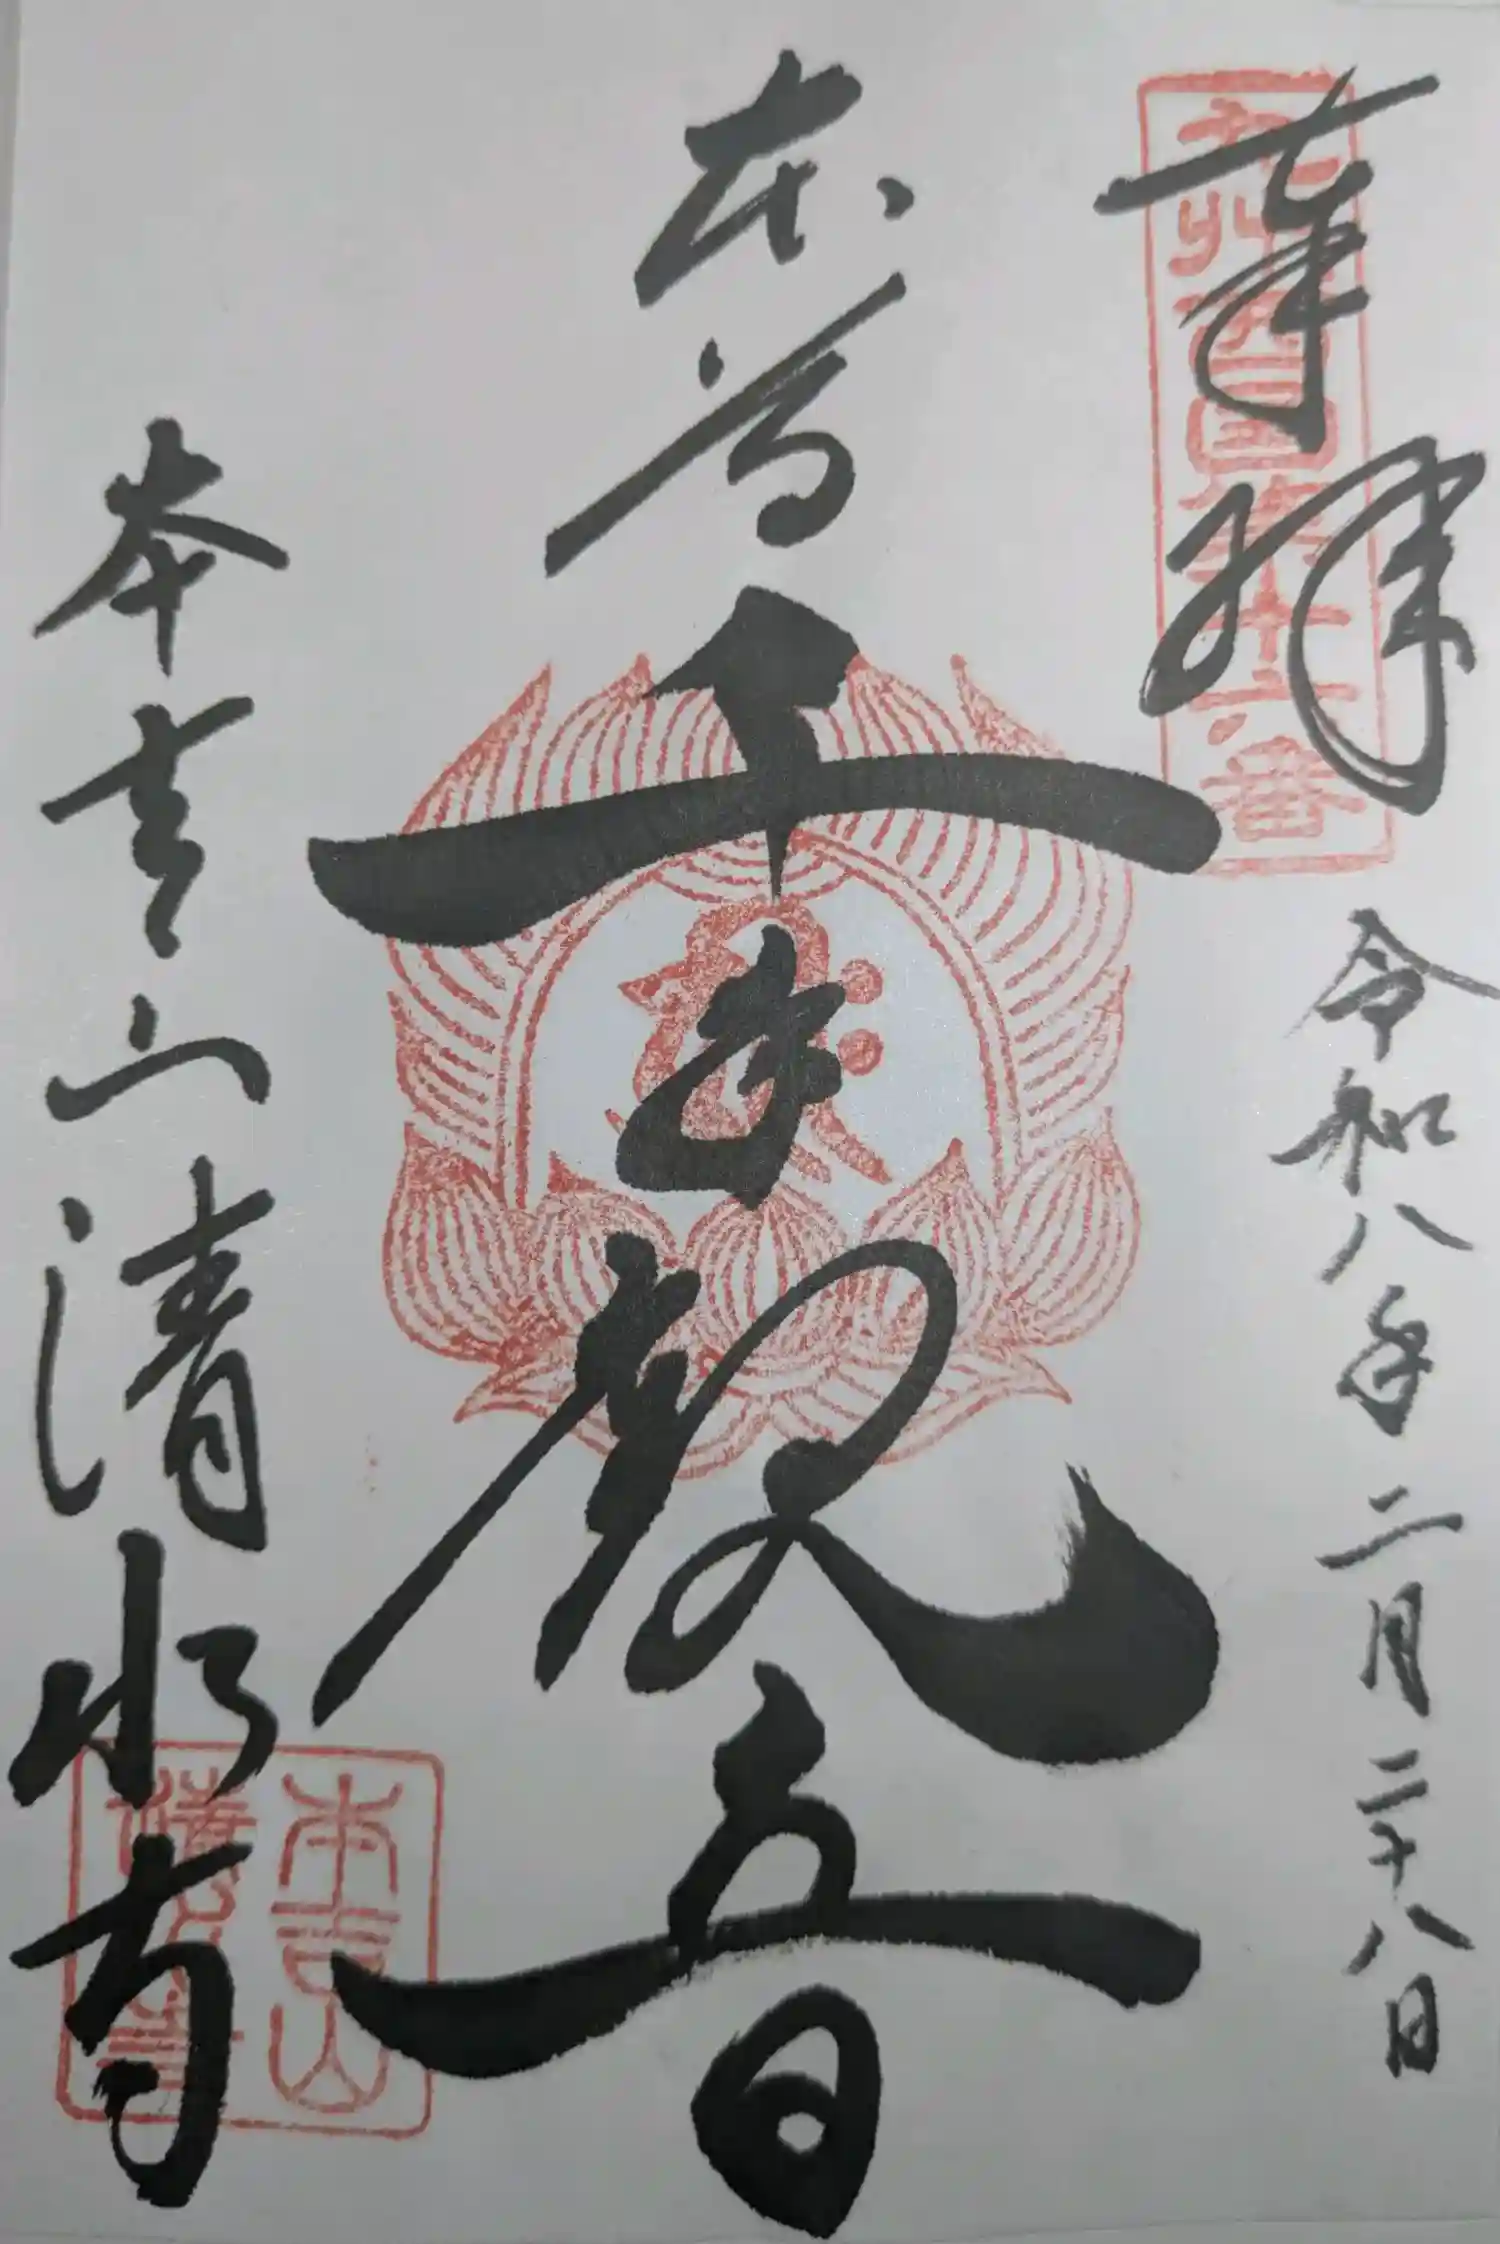 奉拝
九州西国第十六番
令和八年二月二十八日
本尊
千手観音
本吉山清水寺
本吉山
清水寺